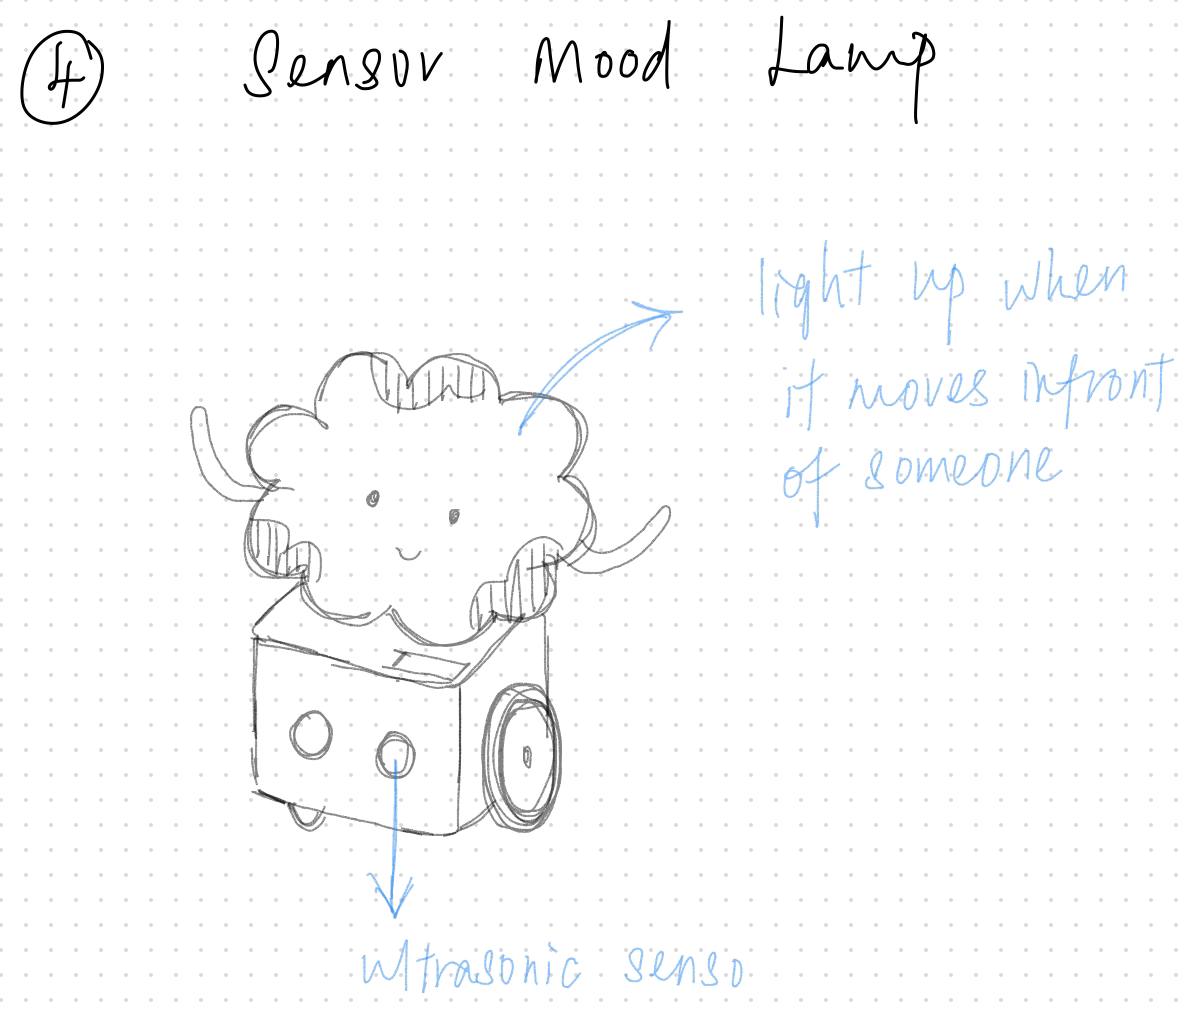 4 Sensor Mood Lamp
light up when
it moves infront
of someone
ultrasonic senso